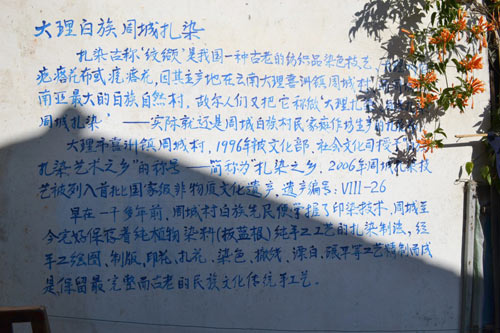 大理白族周城扎染
扎染古称“绞缬”是我国一种古老的纺织品染色技艺,
疙瘩花布或疙瘩花,因其主产地在云南大理喜洲镇周城村,
南亚最大的白族自然村,故尔人们又把它称做“大理扎染
周城扎染”——实际就还是周城白族村民家庭作坊生产的
大理市喜洲镇周城村,1996年被文化部、社会文化司授予
扎染艺术之乡”的称号——简称为“扎染之乡.2006年周城扎染技
艺被列入首批国家级非物质文化遗产,遗产编号:VIII-26
早在一千多年前,周城村白族先民便掌握了印染技术.周城至
今完好保存着纯植物染料(板蓝根)纯手工工艺的扎染制法,经
手工绘图、制版、印花、扎花、染色、撤线、漂白、碾平等工艺精制而成
是保留最完整而古老的民族文化传统手工艺.